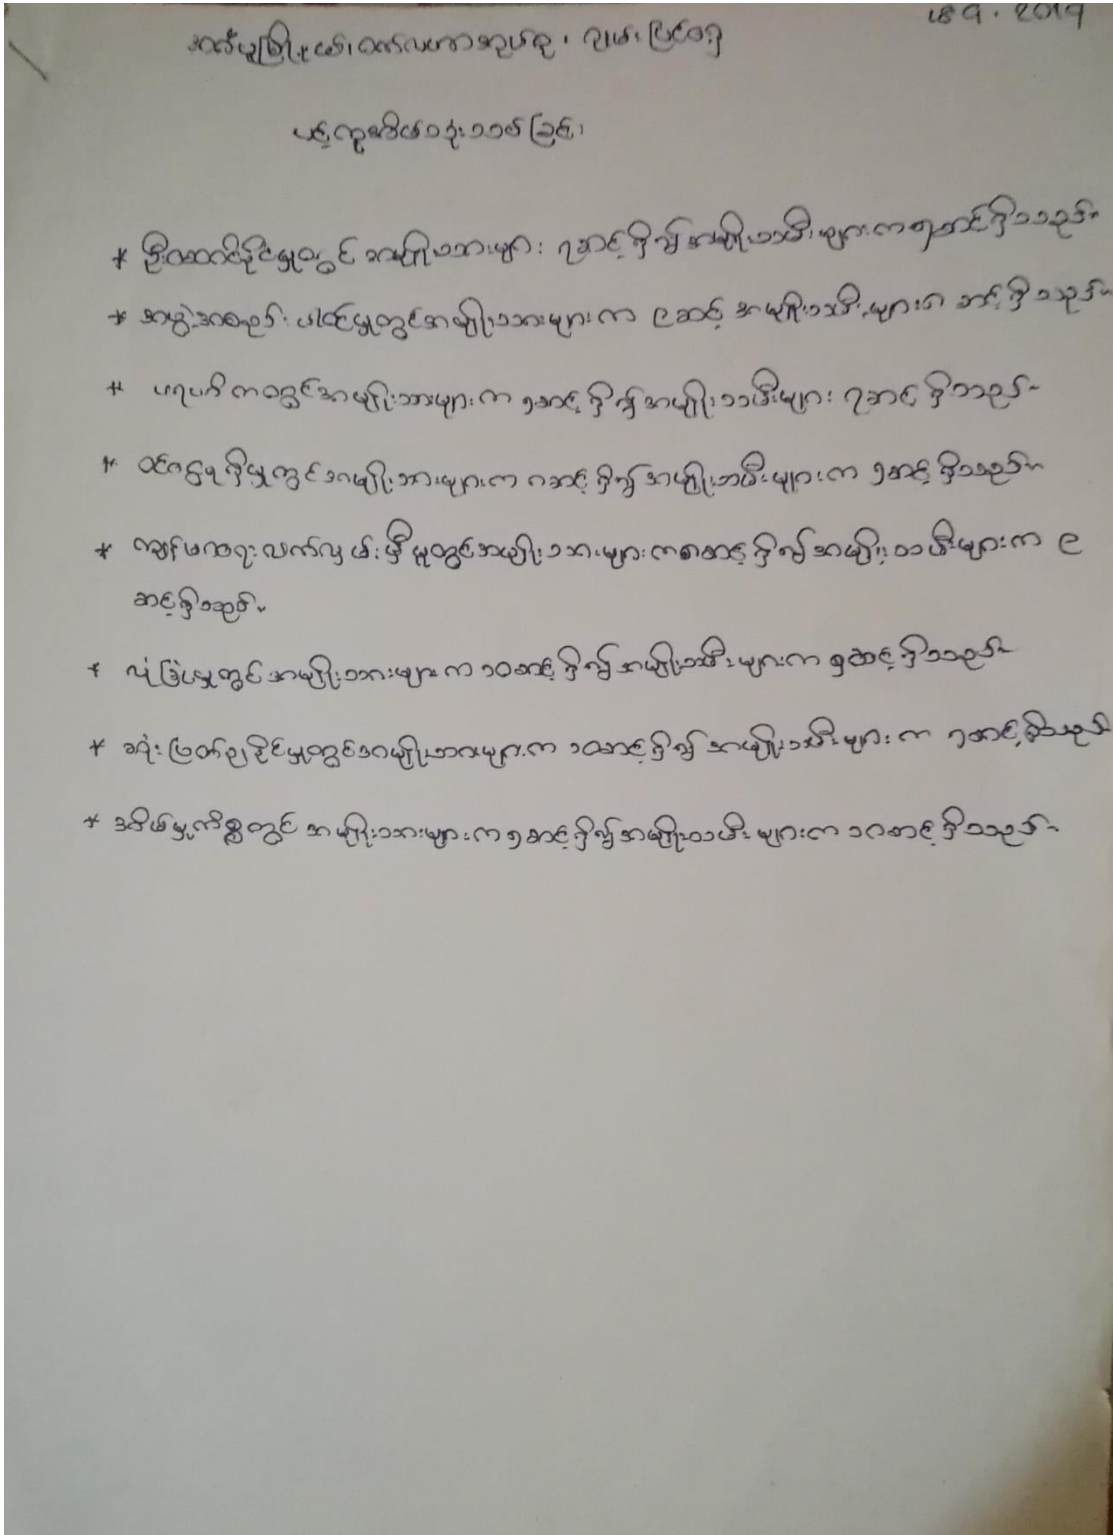 ပင့်ကူအိမ်သုံးသပ်ခြင်း
* ဦးဆောင်နိုင်မှုတွင် အမျိုးသားများ ၇ဆင့်ရှိ၍ အမျိုးသမီးများက ၅ဆင့်ရှိသည်။
* အဖွဲ့အစည်း ပါဝင်မှုတွင်အမျိုးသားများက ၉ဆင့် အမျိုးသမီးများ ဆင့်ရှိသည်။
* ပရဟိတတွင်အမျိုးသားများက ၅ဆင့်ရှိ၍အမျိုးသမီးများ ၇ဆင့်ရှိသည်။
* ဝင်ငွေရရှိမှုတွင်အမျိုးသားများက ဆင့်ရှိ၍အမျိုးသမီးများက ၅ဆင့်ရှိသည်။
* ကျန်းမာရေးလက်လှမ်းမှီမှုတွင်အမျိုးသားများက ဆင့်ရှိ၍အမျိုးသမီးများက ၉
ဆင့်ရှိသည်။
* လုံခြုံမှုတွင် အမျိုးသားများက ၁၀ဆင့်ရှိ၍အမျိုးသမီးများက ၅ဆင့်ရှိသည်။
* ဆုံးဖြတ်နိုင်မှုတွင်အမျိုးသားများက ၁၀ဆင့်ရှိ၍ အမျိုးသမီးများက ၅ဆင့်ရှိသည်
* အိမ်မှုကိစ္စတွင် အမျိုးသားများက ၅ဆင့်ရှိ၍အမျိုးသမီးများက ၁၀ဆင့်ရှိသည်။